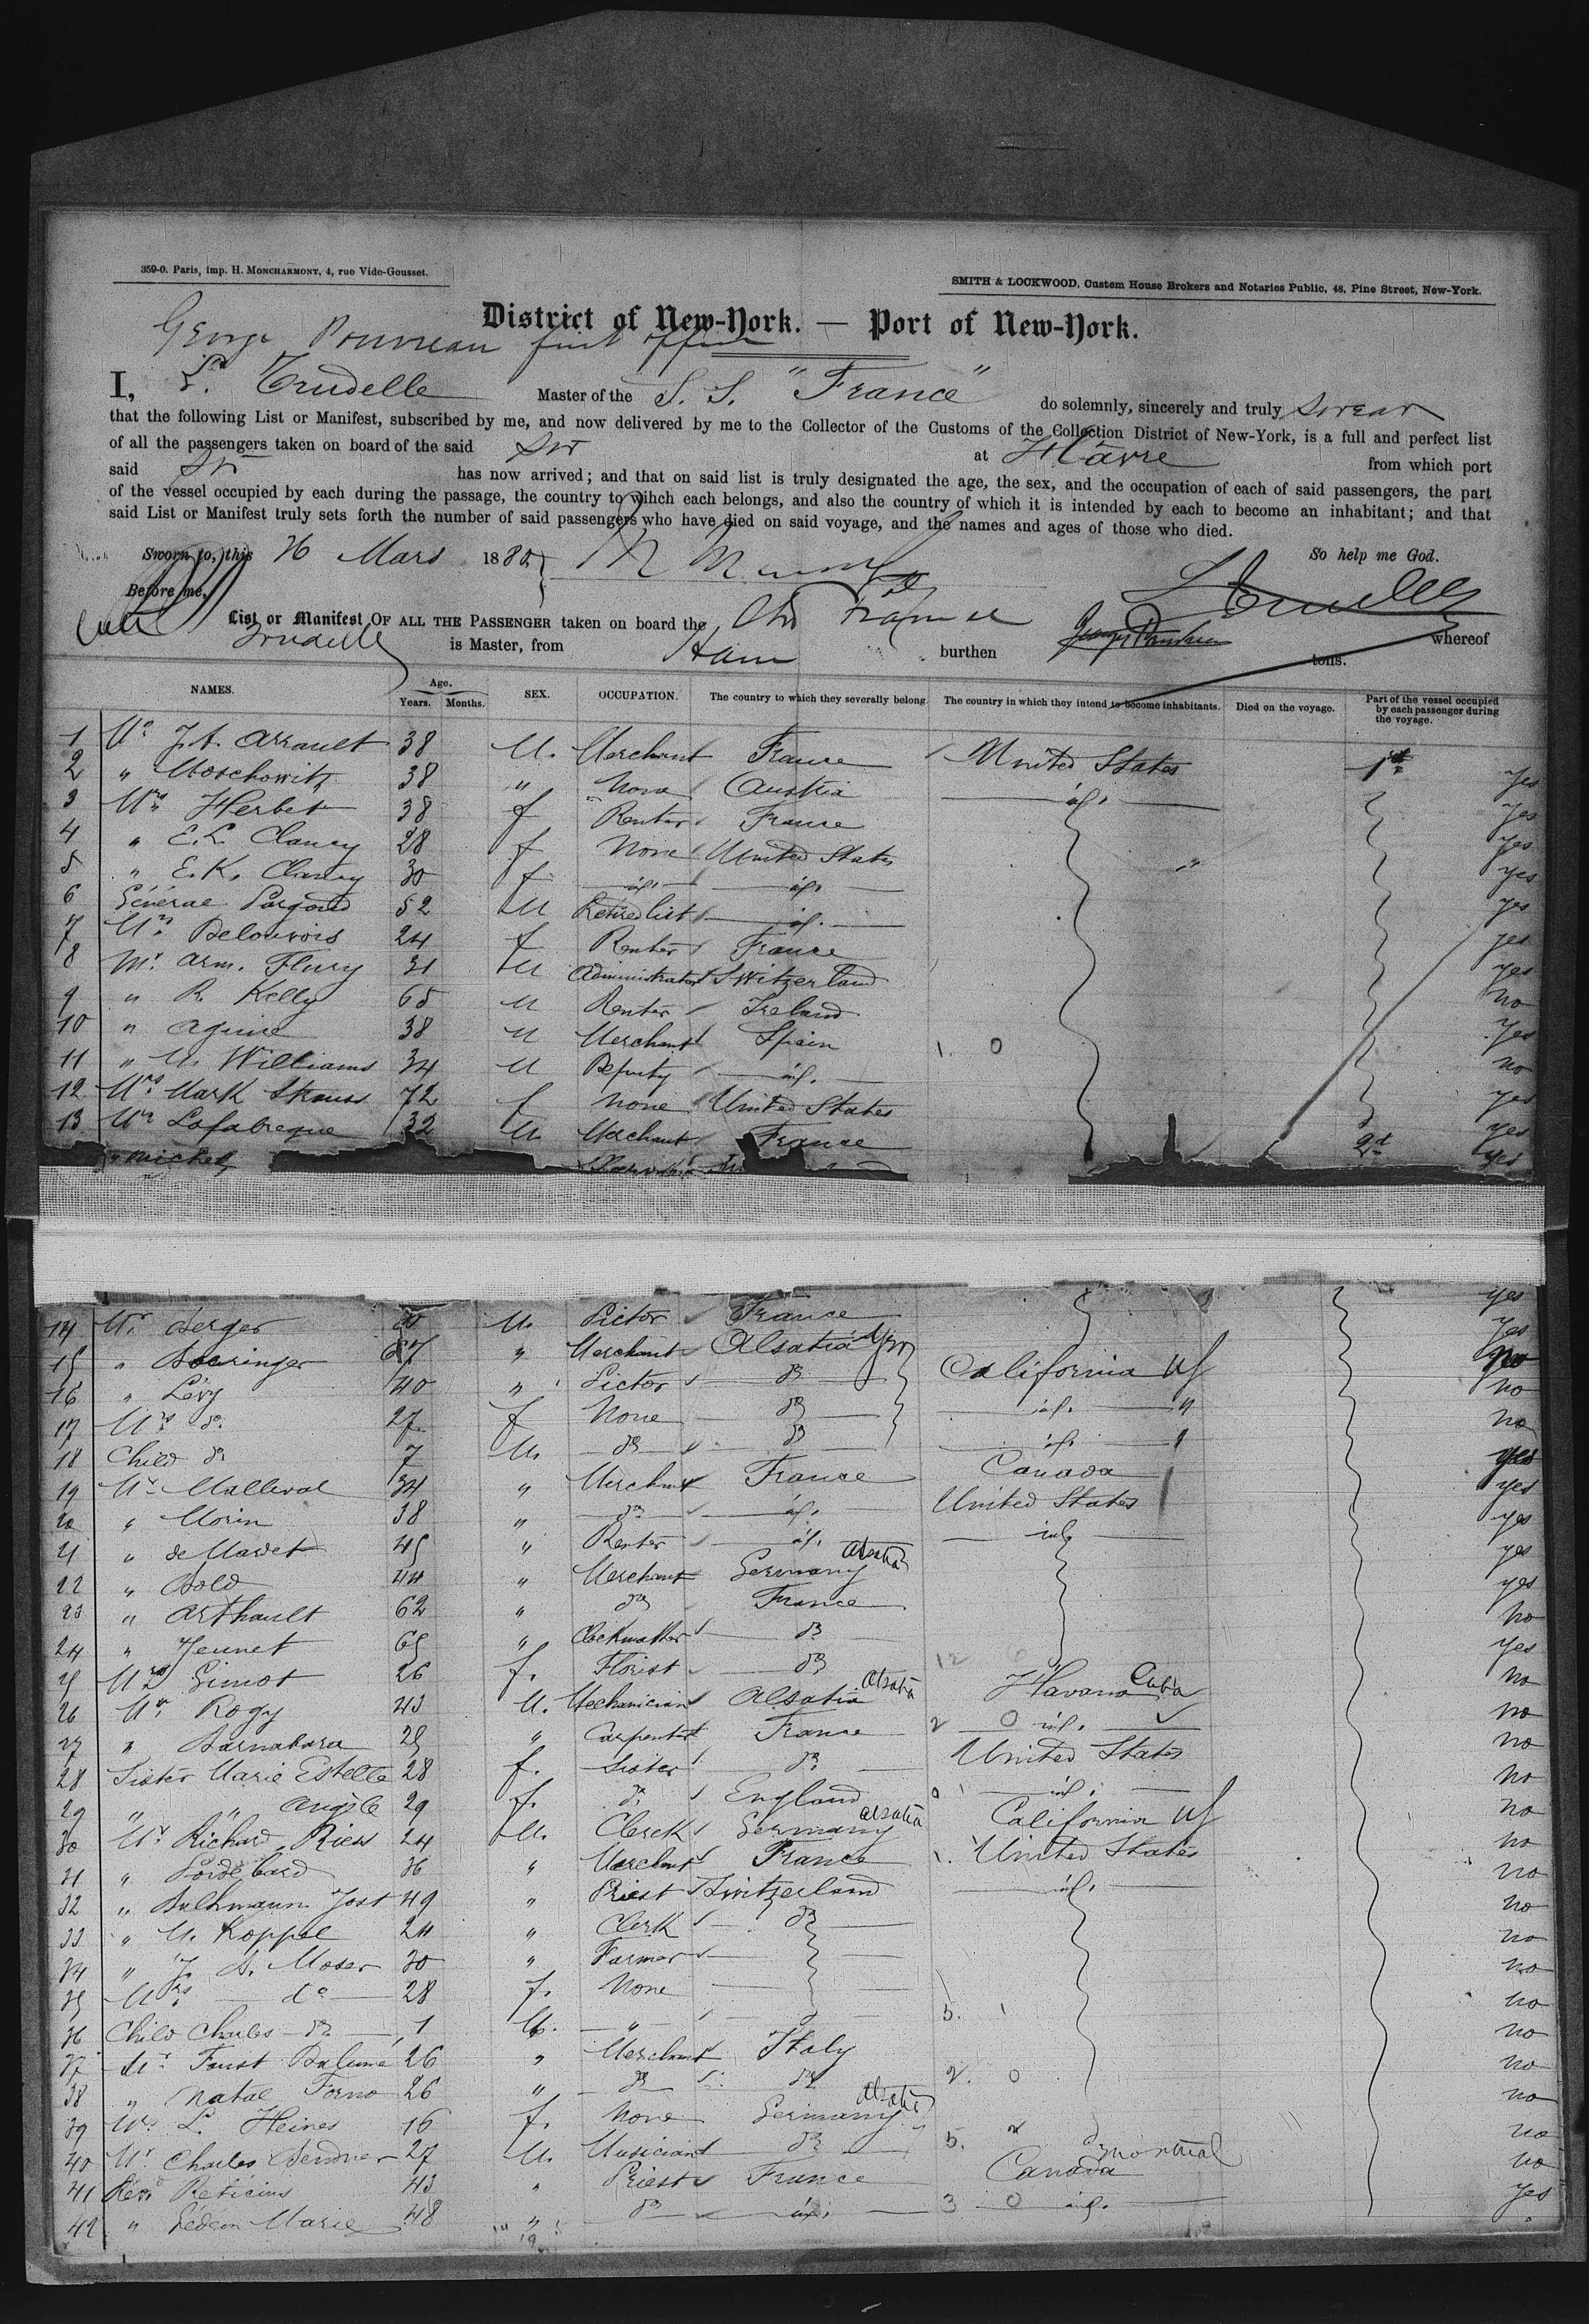 359-0. Paris, imp. H. MONCHARMONT, 4, rue Vide-Gousset.
SMITH & LOCKWOOD, Custom House Brokers and Notaries Public, 48, Pine Street, New-York.
District of New-York. — Port of New-York.
first officer
I, Trudelle Master of the S. S. "France" do solemnly, sincerely and truly swear
that the following List or Manifest, subscribed by me, and now delivered by me to the Collector of the Customs of the Collection District of New-York, is a full and perfect list
of all the passengers taken on board of the said at Havre from which port
said has now arrived; and that on said list is truly designated the age, the sex, and the occupation of each of said passengers, the part
of the vessel occupied by each during the passage, the country to wihch each belongs, and also the country of which it is intended by each to become an inhabitant; and that
said List or Manifest truly sets forth the number of said passengers who have died on said voyage, and the names and ages of those who died.
Sworn to, this Mars 188 So help me God.
Before me,
List or Manifest OF ALL THE PASSENGER taken on board the France whereof
Trudelle is Master, from burthen tons.
NAMES. Age. Years. Months. SEX. OCCUPATION. The country to which they severally belong. The country in which they intend to become inhabitants. Died on the voyage. Part of the vessel occupied by each passenger during the voyage.
1 Mr J.A. Arrault 38 M. Merchant France United States 1st
2 " Moschowitz 38 " None Austria id. yes
3 Mrs Herbet 38 f Renter France yes
4 " E.L. Clancy 28 f None United States yes
5 " E.K. Clancy 30 f id. id. " yes
6 Général 52 M Retired list id. yes
7 Mrs 24 f Renter France yes
8 Mr. Arm. Flury 31 M Administrator Switzerland yes
9 " R. Kelly 65 M Renter Ireland no
10 " 38 M Merchant Spain 1. 0 yes
11 " M. Williams 34 M Deputy id. no
12 Mrs Mark Strauss 72 f None United States yes
13 Mr Lafabregue 32 M. Merchant France 2d yes
" Michel yes
14 Mr Berger M. Pictor France yes
15 " 47 " Merchant Alsatia California US
16 " Lévy 40 " Pictor do no
17 Mrs do. 27 f None do id. " no
18 Child do 7 M. do do id. "
19 Mr Malleval 34 " Merchant France Canada yes
20 " Morin 38 " do id. United States yes
21 " de Mavet 45 " Renter id. id. yes
22 " Bold 44 " Merchant Germany Alsatia yes
23 " Arthault 62 " do France no
24 " Jennet 65 " Clockmaker do yes
25 Mrs Simot 26 f. Florist do no
26 Mr Rogy 43 M. Mechanician Alsatia Alsatia Havana Cuba no
27 " Barnabara 25 " Carpenter France 2 0 id. no
28 Sister Marie Estelle 28 f. Sister do United States no
29 " " Angèle 29 f. do England id. no
30 Mr Richard Riess 24 M. Clerck Germany Alsatia California US no
31 " 36 " Merchant France United States no
32 " Jost 49 " Priest Switzerland id. no
33 " M. Koppel 24 " Clerk do no
34 " J. B. Moser 30 " Farmer no
35 Mrs do 28 f. None no
36 Child Charles do 1 M. " 5. 1 no
37 Mr 26 " Merchant Italy no
38 " Natal Forno 26 " do do 2. 0 no
39 L. Heines 16 f. None Germany Alsatia no
40 Mr Charles 27 M. Musician do 5. Montreal no
41 Rev. Reticius 43 " Priest France Canada no
42 " Gédéon Marie 48 " do id. 3 0 id. yes